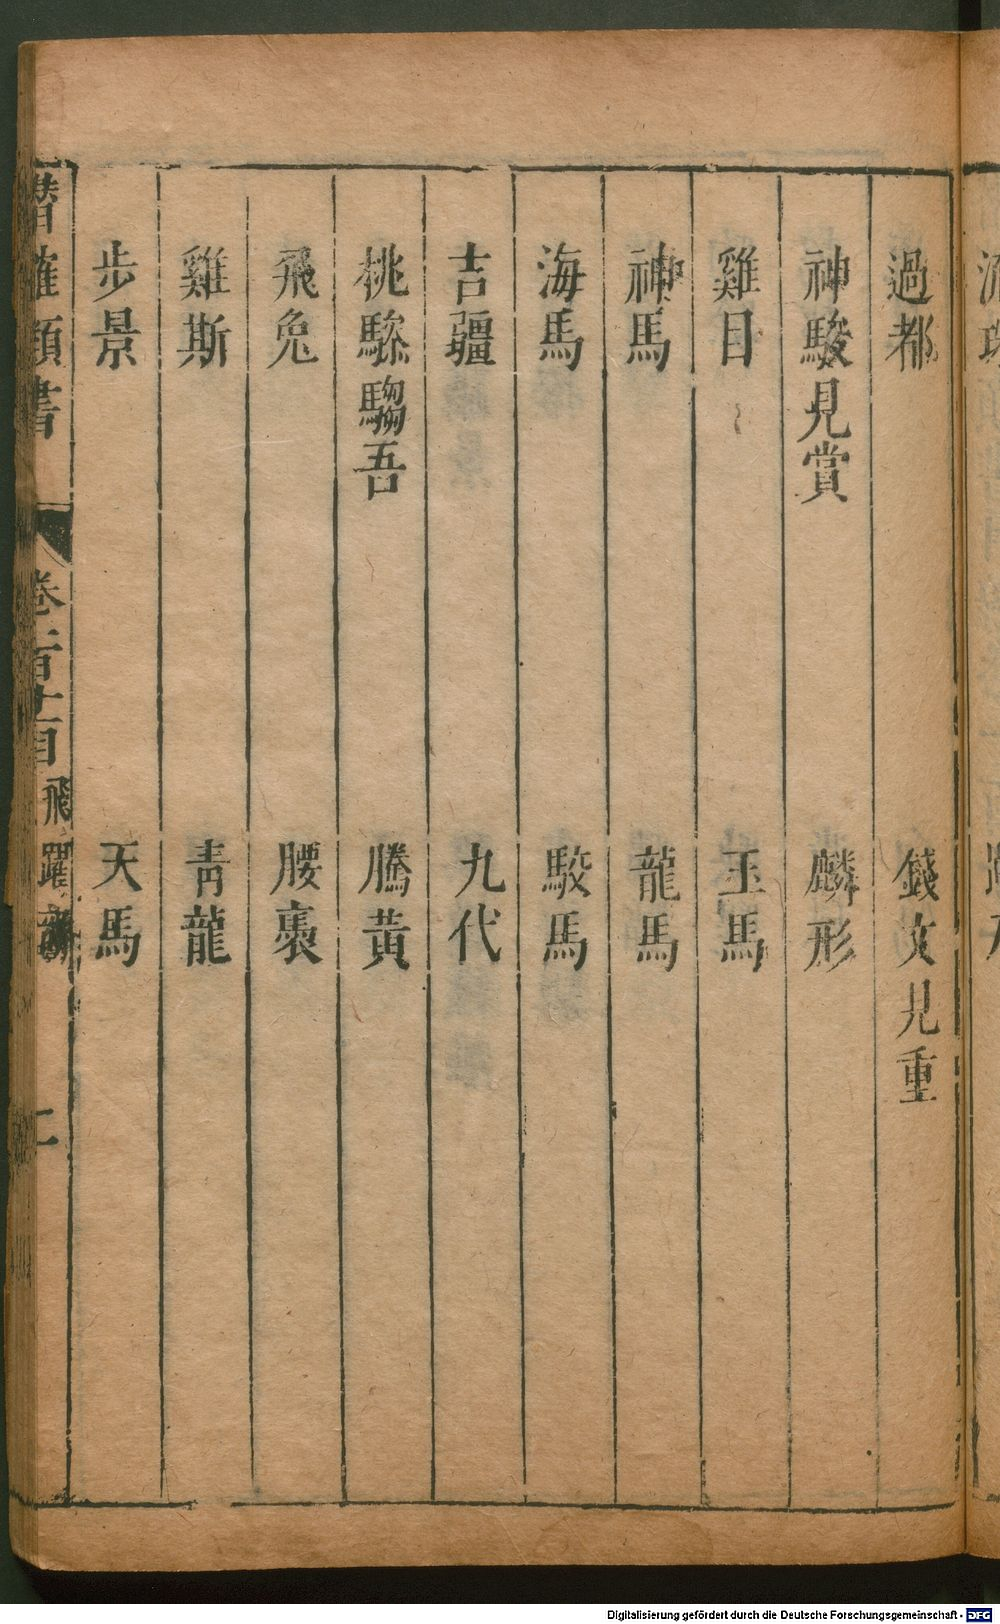 過都　錢文見重
神駿見賞　麟形
雞目　玉馬
神馬　龍馬
海馬　駿馬
吉疆　九代
桃騄騶吾　騰黃
飛兔　腰褭
雞斯　青龍
步景　天馬
潛確類書　卷一百十一目　飛躍　二
Digitalisierung gefördert durch die Deutsche Forschungsgemeinschaft - DFG